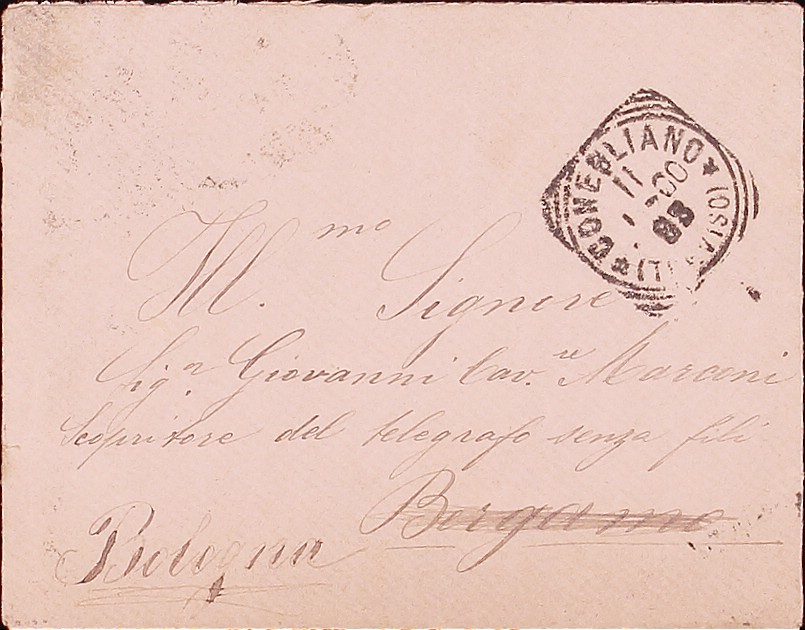 CONEGLIANO
11
00
Ill.mo Signore
Sig.r Giovanni Cav.re Marconi
Scopritore del telegrafo senza fili
Bergamo
Bologna